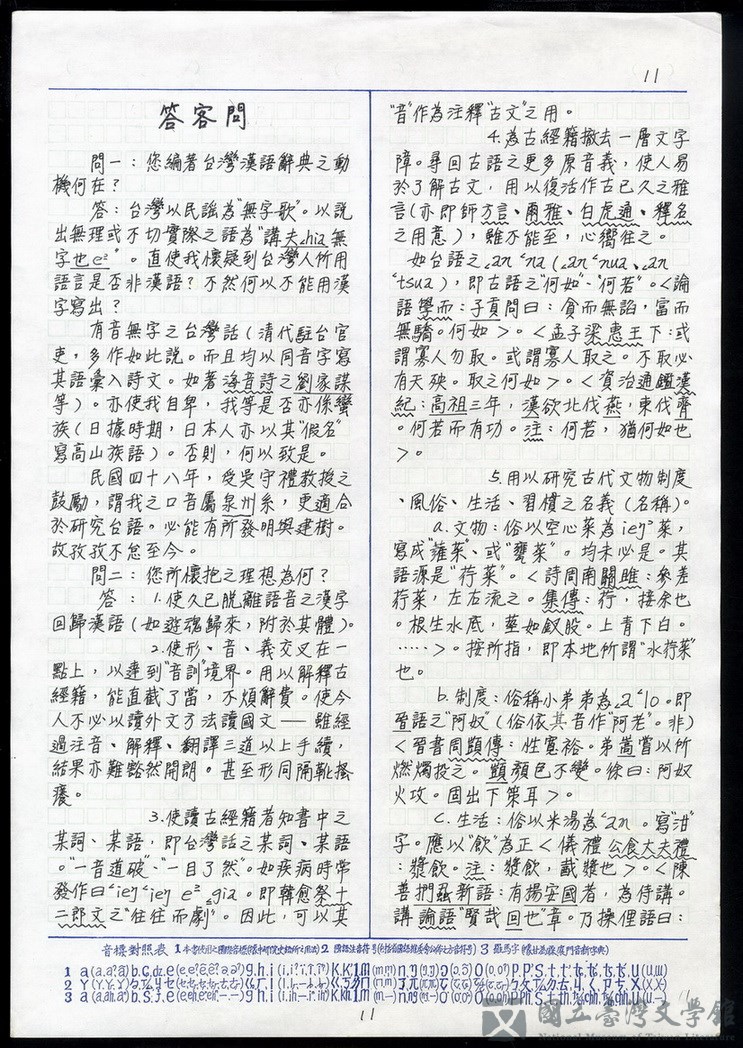 11
答客問
問一：您編著台灣漢語辭典之動
機何在？
答：台灣以民謠為"無字歌"。以說
出無理或不切實際之語為"講夫hia無
字也e²"。直使我懷疑到台灣人所用
語言是否非漢語？不然何以不能用漢
字寫出？
有音無字之台灣話（清代駐台官
吏，多作如此說。而且均以同音字寫
其語彙入詩文。如著海音詩之劉家謀
等）。亦使我自卑，我等是否亦係蠻
族（日據時期，日本人亦以其"假名"
寫高山族語）。否則，何以致是。
民國四十八年，受吳守禮教授之
鼓勵，謂我之口音屬泉州系，更適合
於研究台語。必能有所發明與建樹。
故孜孜不怠至今。
問二：您所懷抱之理想為何？
答：1.使久已脫離語音之漢字
回歸漢語（如遊魂歸來，附於其體）。
2.使形、音、義交叉在一
點上，以達到"音訓"境界。用以解釋古
經籍，能直截了當，不煩辭費。使今
人不必以讀外文方法讀國文——雖經
過注音、解釋、翻譯三道以上手續，
結果亦難豁然開朗。甚至形同隔靴搔
癢。
3.使讀古經籍者知書中之
某詞、某語，即台灣話之某詞、某語
。"一音道破"、"一目了然"。如疾病時常
發作曰"ieŋ ieŋ e² gia。即韓愈祭十
二郎文之"往往而劇"。因此，可以其
"音"作為注釋"古文"之用。
4.為古經籍撤去一層文字
障。尋回古語之更多原音義，使人易
於了解古文，用以復活作古已久之雅
言（亦即師方言、爾雅、白虎通、釋名
之用意），雖不能至，心嚮往之。
如台語之an na（an nua、an
tsua），即古語之"何如"、"何若"。＜論
語學而：子貢問曰：貧而無諂，富而
無驕。何如＞。＜孟子梁惠王下：或
謂寡人勿取。或謂寡人取之。不取必
有天殃。取之何如＞。＜資治通鑑漢
紀：高祖三年，漢欲北伐燕，東伐齊
。何若而有功。注：何若，猶何如也
＞。
5.用以研究古代文物制度
、風俗、生活、習慣之名義（名稱）。
a.文物：俗以空心菜為ieŋ²菜，
寫成"蕹菜"、或"甕菜"。均未必是。其
語源是"荇菜"。＜詩周南關雎：參差
荇菜，左右流之。集傳：荇，接余也
。根生水底，莖如釵股。上青下白。
……＞。按所指，即本地所謂"水荇菜"
也。
b.制度：俗稱小弟弟為a lo。即
晉語之"阿奴"（俗依其音作"阿老"。非）
＜晉書周顗傳：性寬裕。弟嵩嘗以所
燃燭投之。顗顏色不變。徐曰：阿奴
火攻。固出下策耳＞。
c.生活：俗以米湯為am。寫"泔"
字。應以"飲"為正＜儀禮公食大夫禮
：漿飲。注：漿飲，載漿也＞。＜陳
善捫蝨新語：有揚安國者，為侍講。
講論語"賢哉回也"章。乃操俚語曰：
音標對照表
11
國立臺灣文學館
National Museum of Taiwan Literature